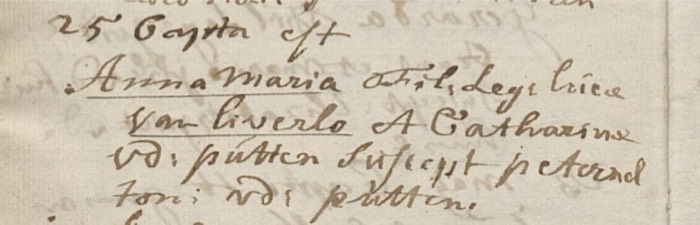 25 Bapta est
Anna Maria Fil: Leg: lucæ
van liverlo et Catharinæ
vd: putten Suscept peternel
toni vd: putten.